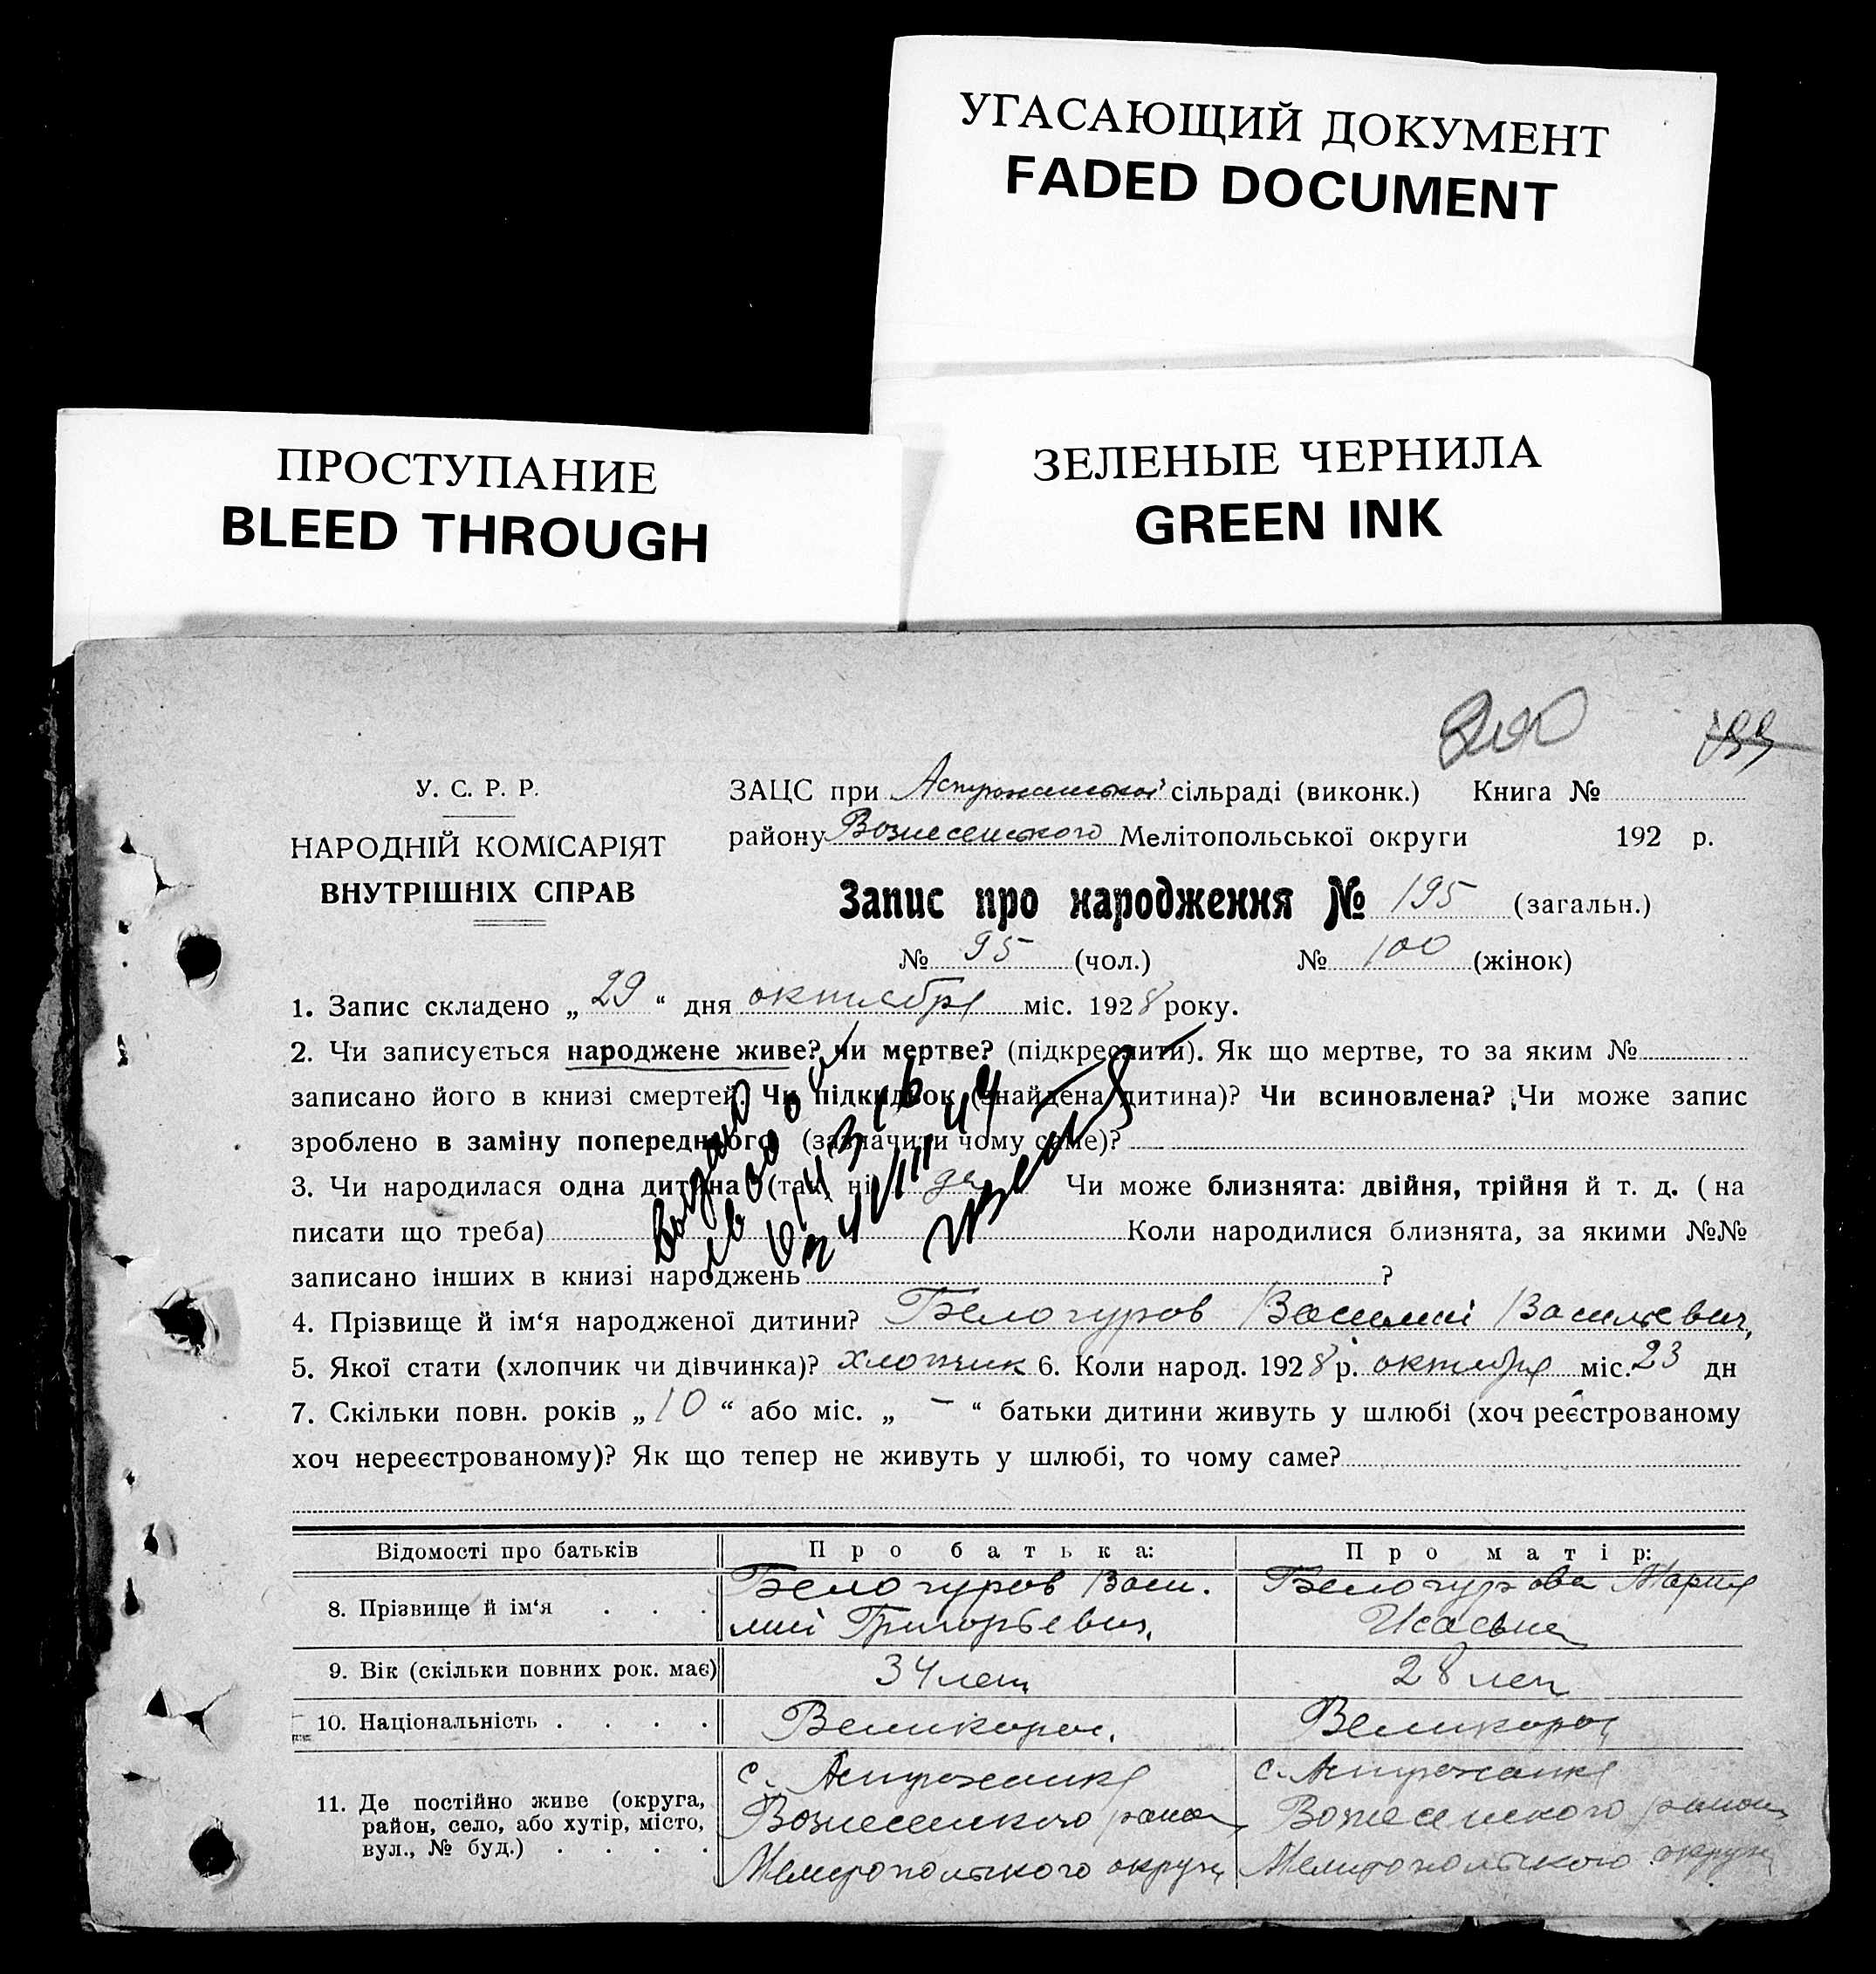 УГАСАЮЩИЙ ДОКУМЕНТ
FADED DOCUMENT
ПРОСТУПАНИЕ
BLEED THROUGH
ЗЕЛЕНЫЕ ЧЕРНИЛА
GREEN INK
У. С. Р. Р.
НАРОДНІЙ КОМІСАРІЯТ
ВНУТРІШНІХ СПРАВ
ЗАЦС при Астраханській сільраді (виконк.) Книга №
району Вознесенского Мелітопольської округи 192 р.
Запис про народження № 195 (загальн.)
№ 95 (чол.) № 100 (жінок)
1. Запис складено „ 29 “ дня октября міс. 1928 року.
2. Чи записується народжене живе? чи мертве? (підкреслити). Як що мертве, то за яким №
записано його в книзі смертей. Чи підкидьок (знайдена дитина)? Чи всиновлена? Чи може запис
зроблено в заміну попереднього (зазначити чому саме)?
3. Чи народилася одна дитина (так, ні) да Чи може близнята: двійня, трійня й т. д. (на
писати що треба) Коли народилися близнята, за якими №№
записано інших в книзі народжень ?
4. Прізвище й ім‘я народженої дитини? Белогуров Василий Васильевич,
5. Якої стати (хлопчик чи дівчинка)? хлопчик 6. Коли народ. 1928 р. октября міс. 23 дн
7. Скільки повн. років „ 10 “ або міс. „ – “ батьки дитини живуть у шлюбі (хоч реєстрованому
хоч нереєстрованому)? Як що тепер не живуть у шлюбі, то чому саме?
Відомості про батьків Про батька: Про матір:
8. Прізвище й ім‘я . . . Белогуров Васи. Белогурова Мария
лий Григорьевич. Исаевна
9. Вік (скільки повних рок. має) 34 лет 28 лет
10. Національність . . . . Великорос. Великорос
11. Де постійно живе (округа, с. Астраханка с. Астраханка
район, село, або хутір, місто, Вознесенского района Вознесенского района
вул., № буд.) . . . . Мелитопольского округа Мелитопольского округа